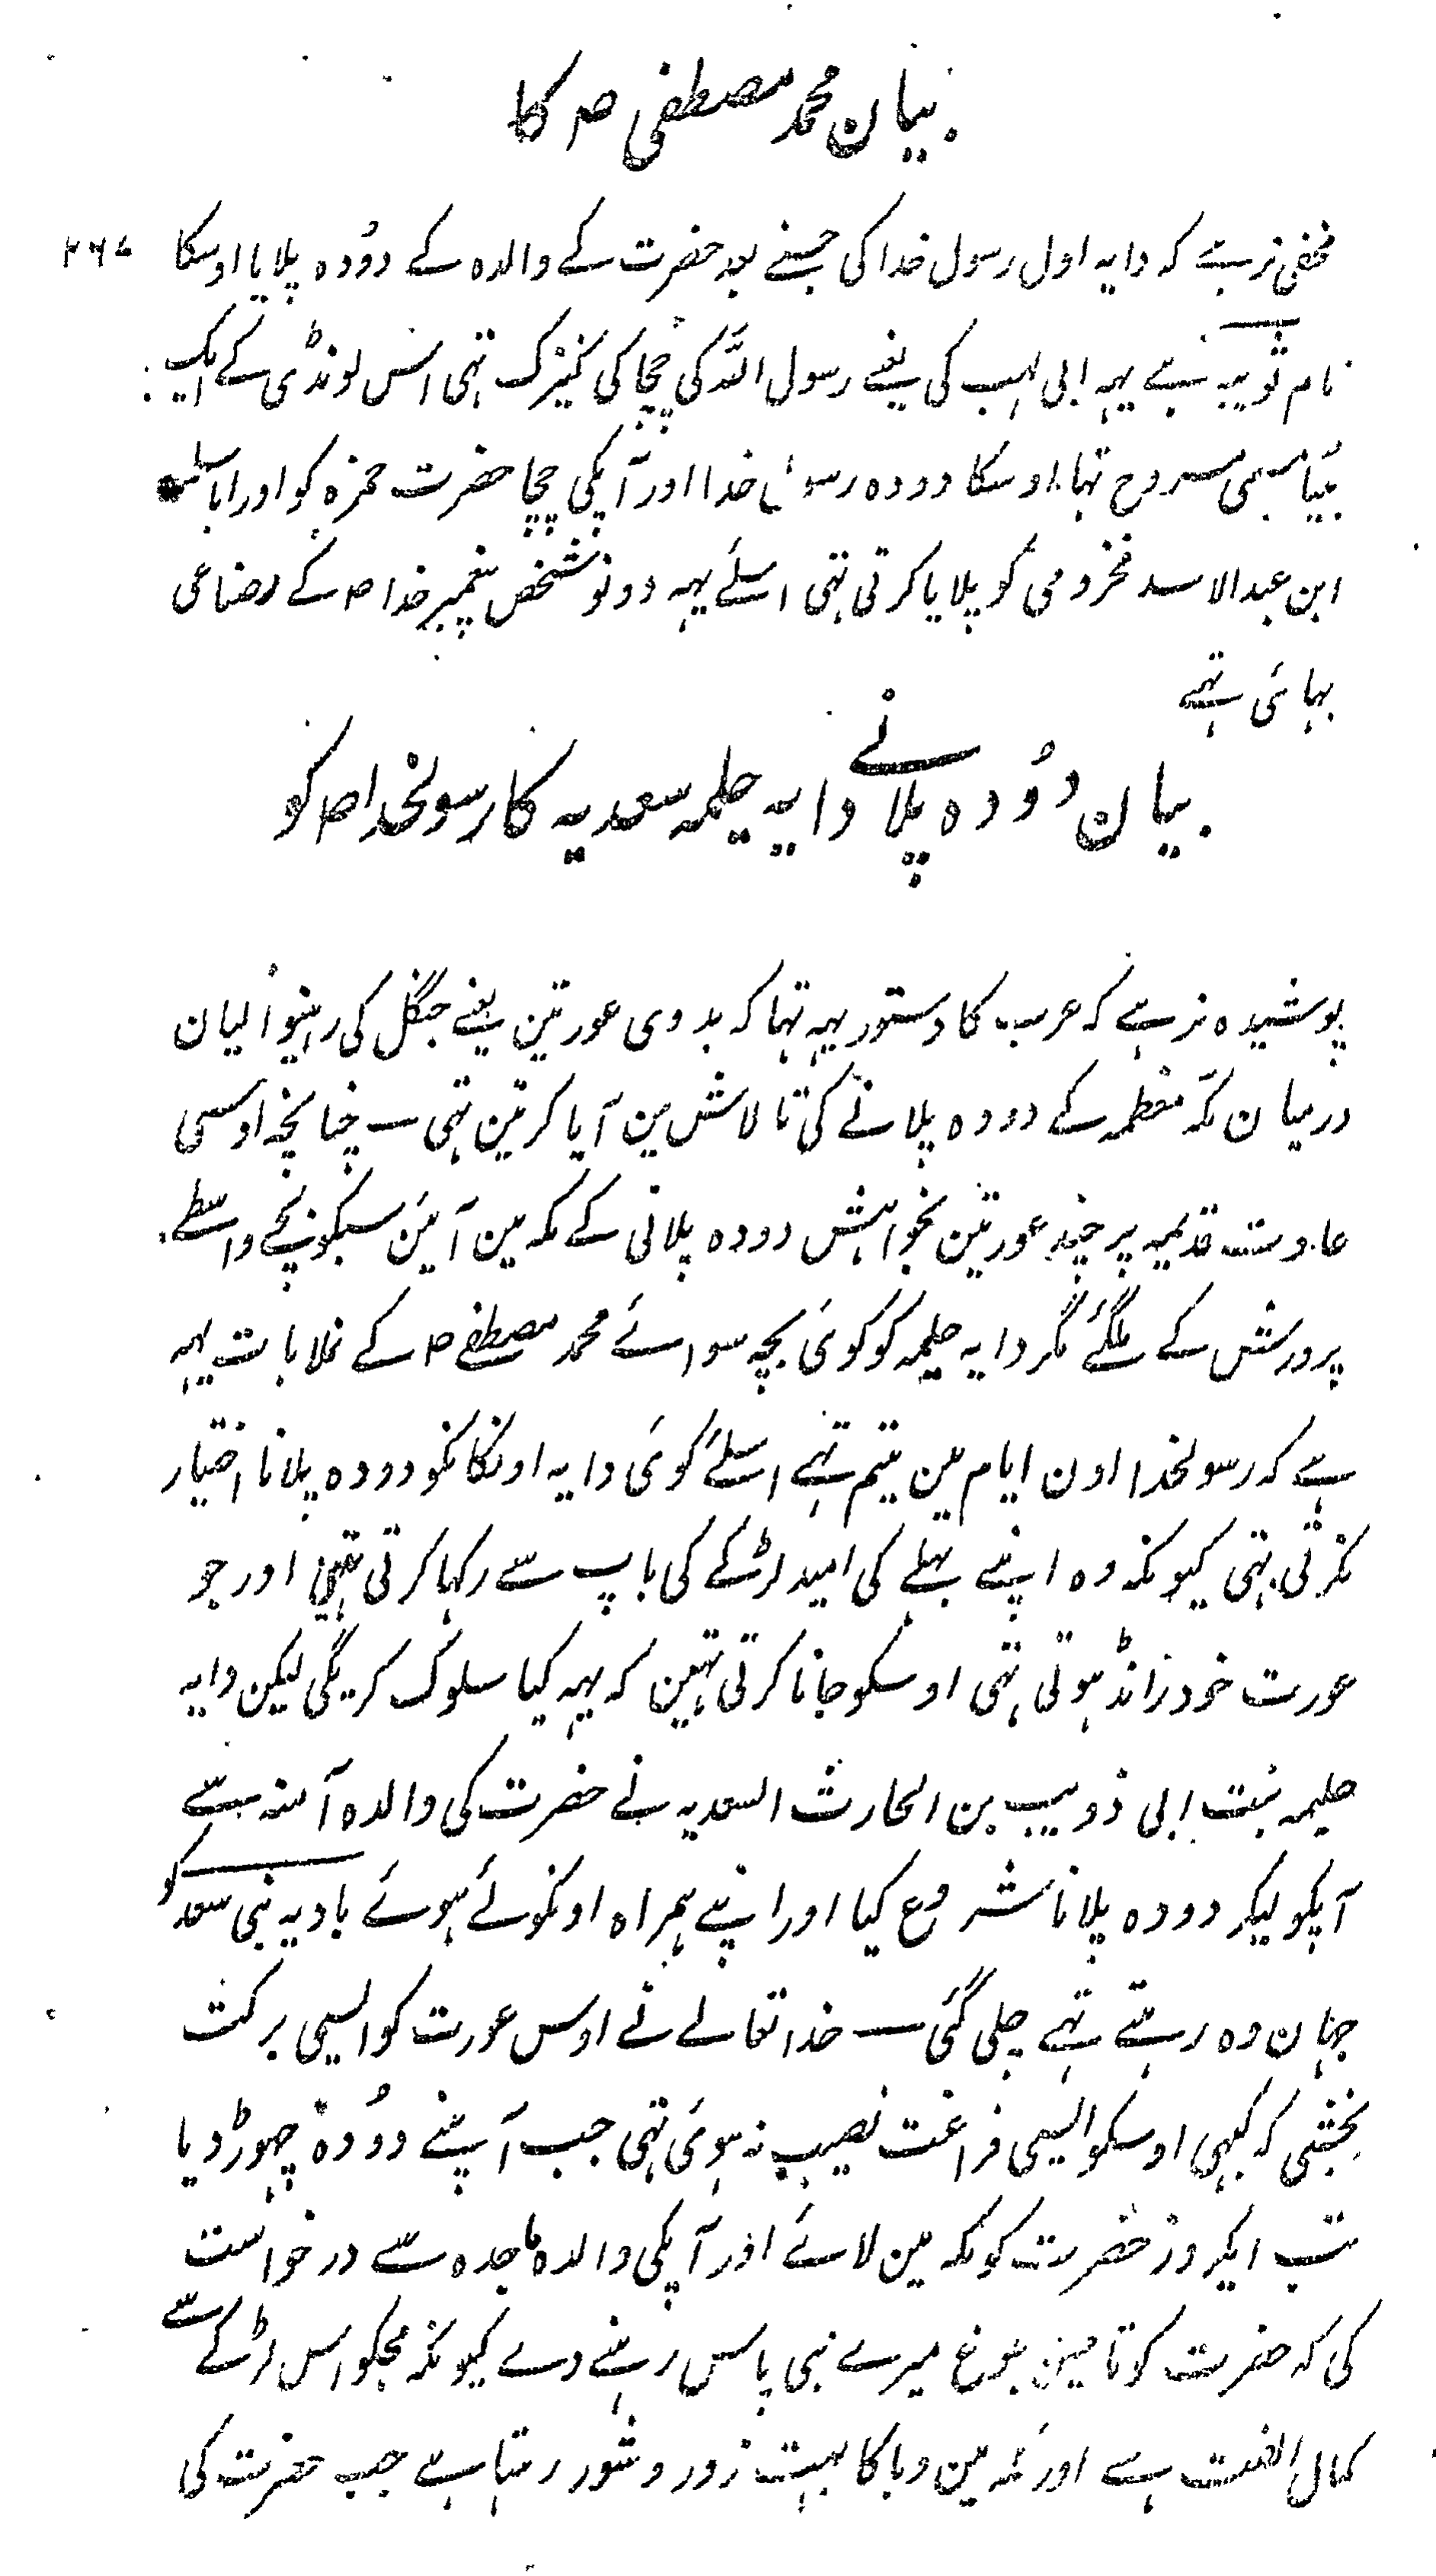 بیان محمد مصطفی ص کا
مخفی نرہے کہ دایہ اول رسول خدا کی جسنے بعد حضرت کے والدہ کے دُودہ پلایا اوسکا ۲۶۷
نام ثویبہ ہے یہہ ابی لہب کی یعنے رسول اللّٰہ کی چچا کی کنیزک تہی اس لونڈی کے ایک
بیٹا مسمی مسروح تہا اوسکا دودہ رسول خدا اور آپکی چچا حضرت حمزہ کو اور ابا سلمہ
ابن عبدالاسد مخزومی کو پلایا کرتی تہی اسلئے یہہ دونو شخص پیغمبر خدا ص کے رضاعی
بہائی تہے
بیان دُودہ پلانے دایہ حلیمہ سعدیہ کا رسولخدا ص کو
پوشیدہ نرہے کہ عرب کا دستور یہہ تہا کہ بدوی عورتین یعنے جنگل کی رہنیوالیان
درمیان مکّہ معظمہ کے دودہ پلانے کی تالاش مین آیا کرتین تہی ـ چنانچہ اوسی
عادت قدیمہ پر چند عورتین بخواہش دودہ پلانی کے مکہ مین آئین سبکو بچے واسطے
پرورش کے ملگئے مگر دایہ حلیمہ کو کوئی بچہ سوائے محمد مصطفے ص کے نملا بات یہہ
ہے کہ رسولخدا اون ایام مین یتیم تہے اسلئے کوئی دایہ اونکا نکو دودہ پلانا اختیار
نکرتی تہی کیونکہ وہ اپنے بہلے کی امید لڑکے کی باپ سے رکہا کرتی تہین اور جو
عورت خود رانڈ ہوتی تہی اوسکو جانا کرتی تہین کہ یہہ کیا سلوک کریگی لیکن دایہ
حلیمہ بنت ابی ذویب بن الحارث السعدیہ نے حضرت کی والدہ آمنہ سے
آپکو لیکر دودہ پلانا شروع کیا اور اپنے ہمراہ اونکو لئے ہوئے بادیہ بنی سعد کو
جہان وہ رہتے تہے چلی گئی ـ خدا تعالے نے اوس عورت کو ایسی برکت
بخشی کہ کبہی اوسکو ایسی فراغت نصیب نہ ہوئی تہی جب آپنے دُودہ چہوڑ دیا
تب ایکروز حضرت کو مکہ مین لائے اور آپکی والدہ ماجدہ سے درخواست
کی کہ حضرت کو تا بلوغ میرے ہی پاس رہنے دے کیونکہ مجکو اس لڑکے سے
کمال الفت ہے اور مکہ مین وبا کا بہت زور و شور رہتا ہے جب حضرت کی